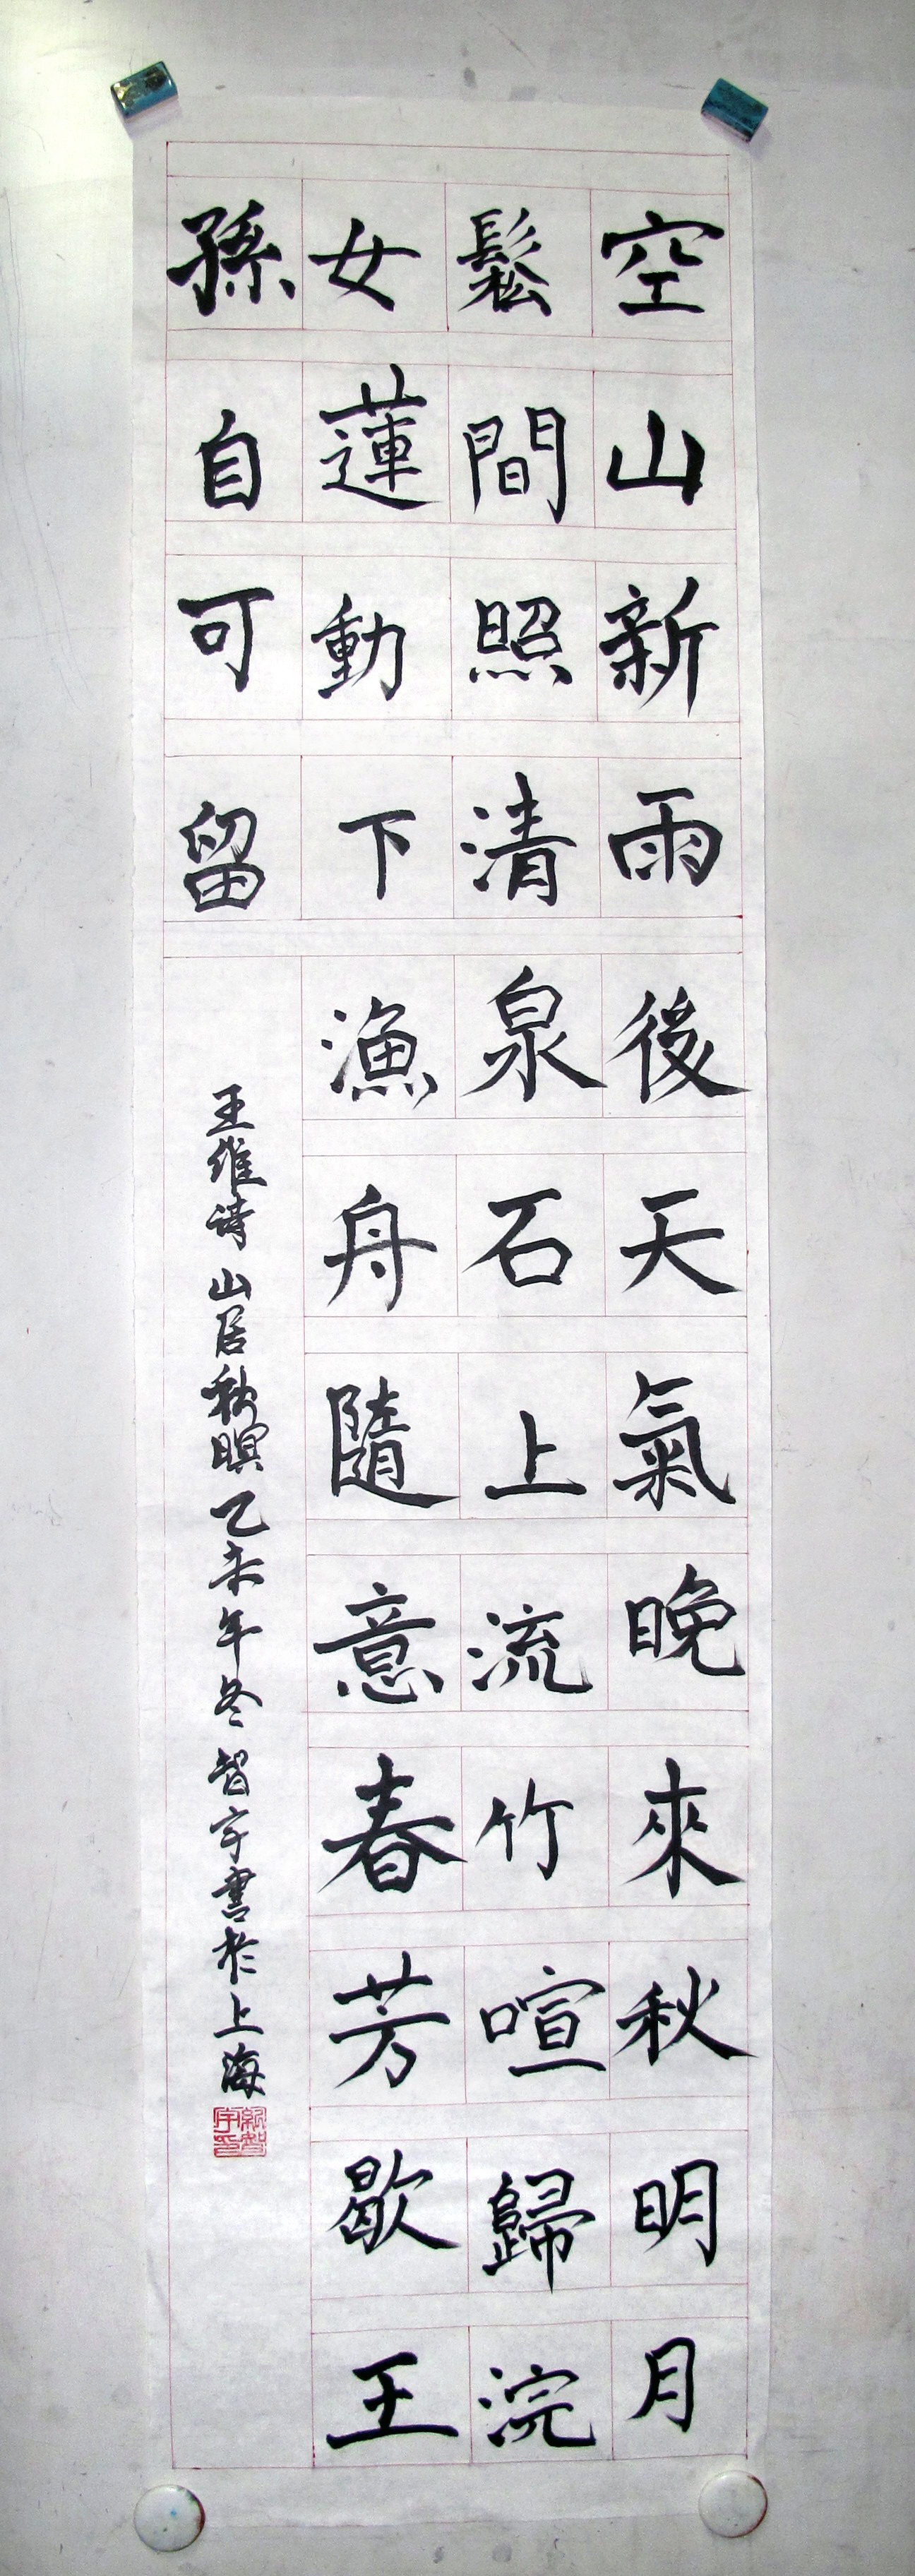 空山新雨後天氣晚來秋明月
鬆間照清泉石上流竹喧歸浣
女蓮動下漁舟隨意春芳歇王
孫自可留
王維詩山居秋暝乙未年冬智宇書於上海